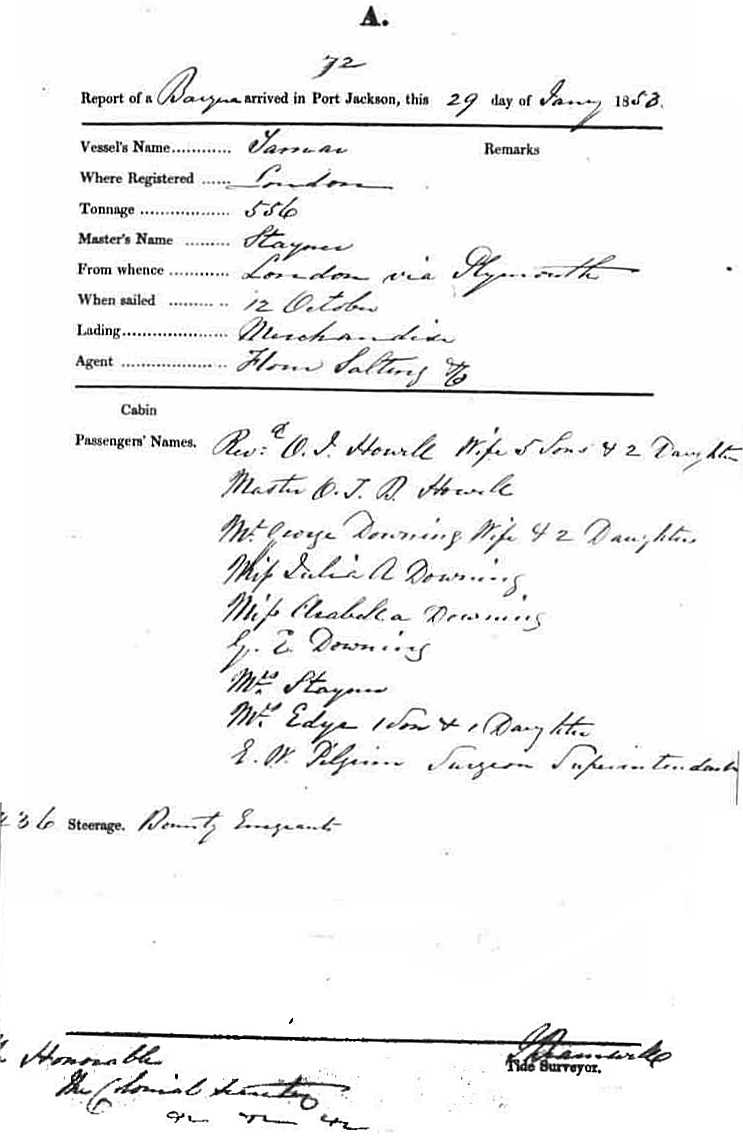 A.
72
Report of a Barque arrived in Port Jackson, this 29 day of Jany 1853.
Vessel's Name............ Tamar
Remarks
Where Registered ...... London
Tonnage .................. 556
Master's Name ......... Stayner
From whence ............ London via Plymouth
When sailed ......... .. 12 October
Lading..................... Merchandise
Agent ..................... Flower Salting & Co
Cabin
Passengers' Names. Revd. O. J. Howell Wife 5 Sons & 2 Daughters
Master O. T. B. Howell
Mr. George Downing Wife & 2 Daughters
Miss Julia A Downing
Miss Arabella Downing
G. E. Downing
Mrs. Stayner
Mrs. Edye 1 Son & 1 Daughter
E. W. Pilgrim Surgeon Superintendent
236 Steerage. Bounty Emigrants
Tide Surveyor.
Honorable
The Colonial Secretary
&c &c &c